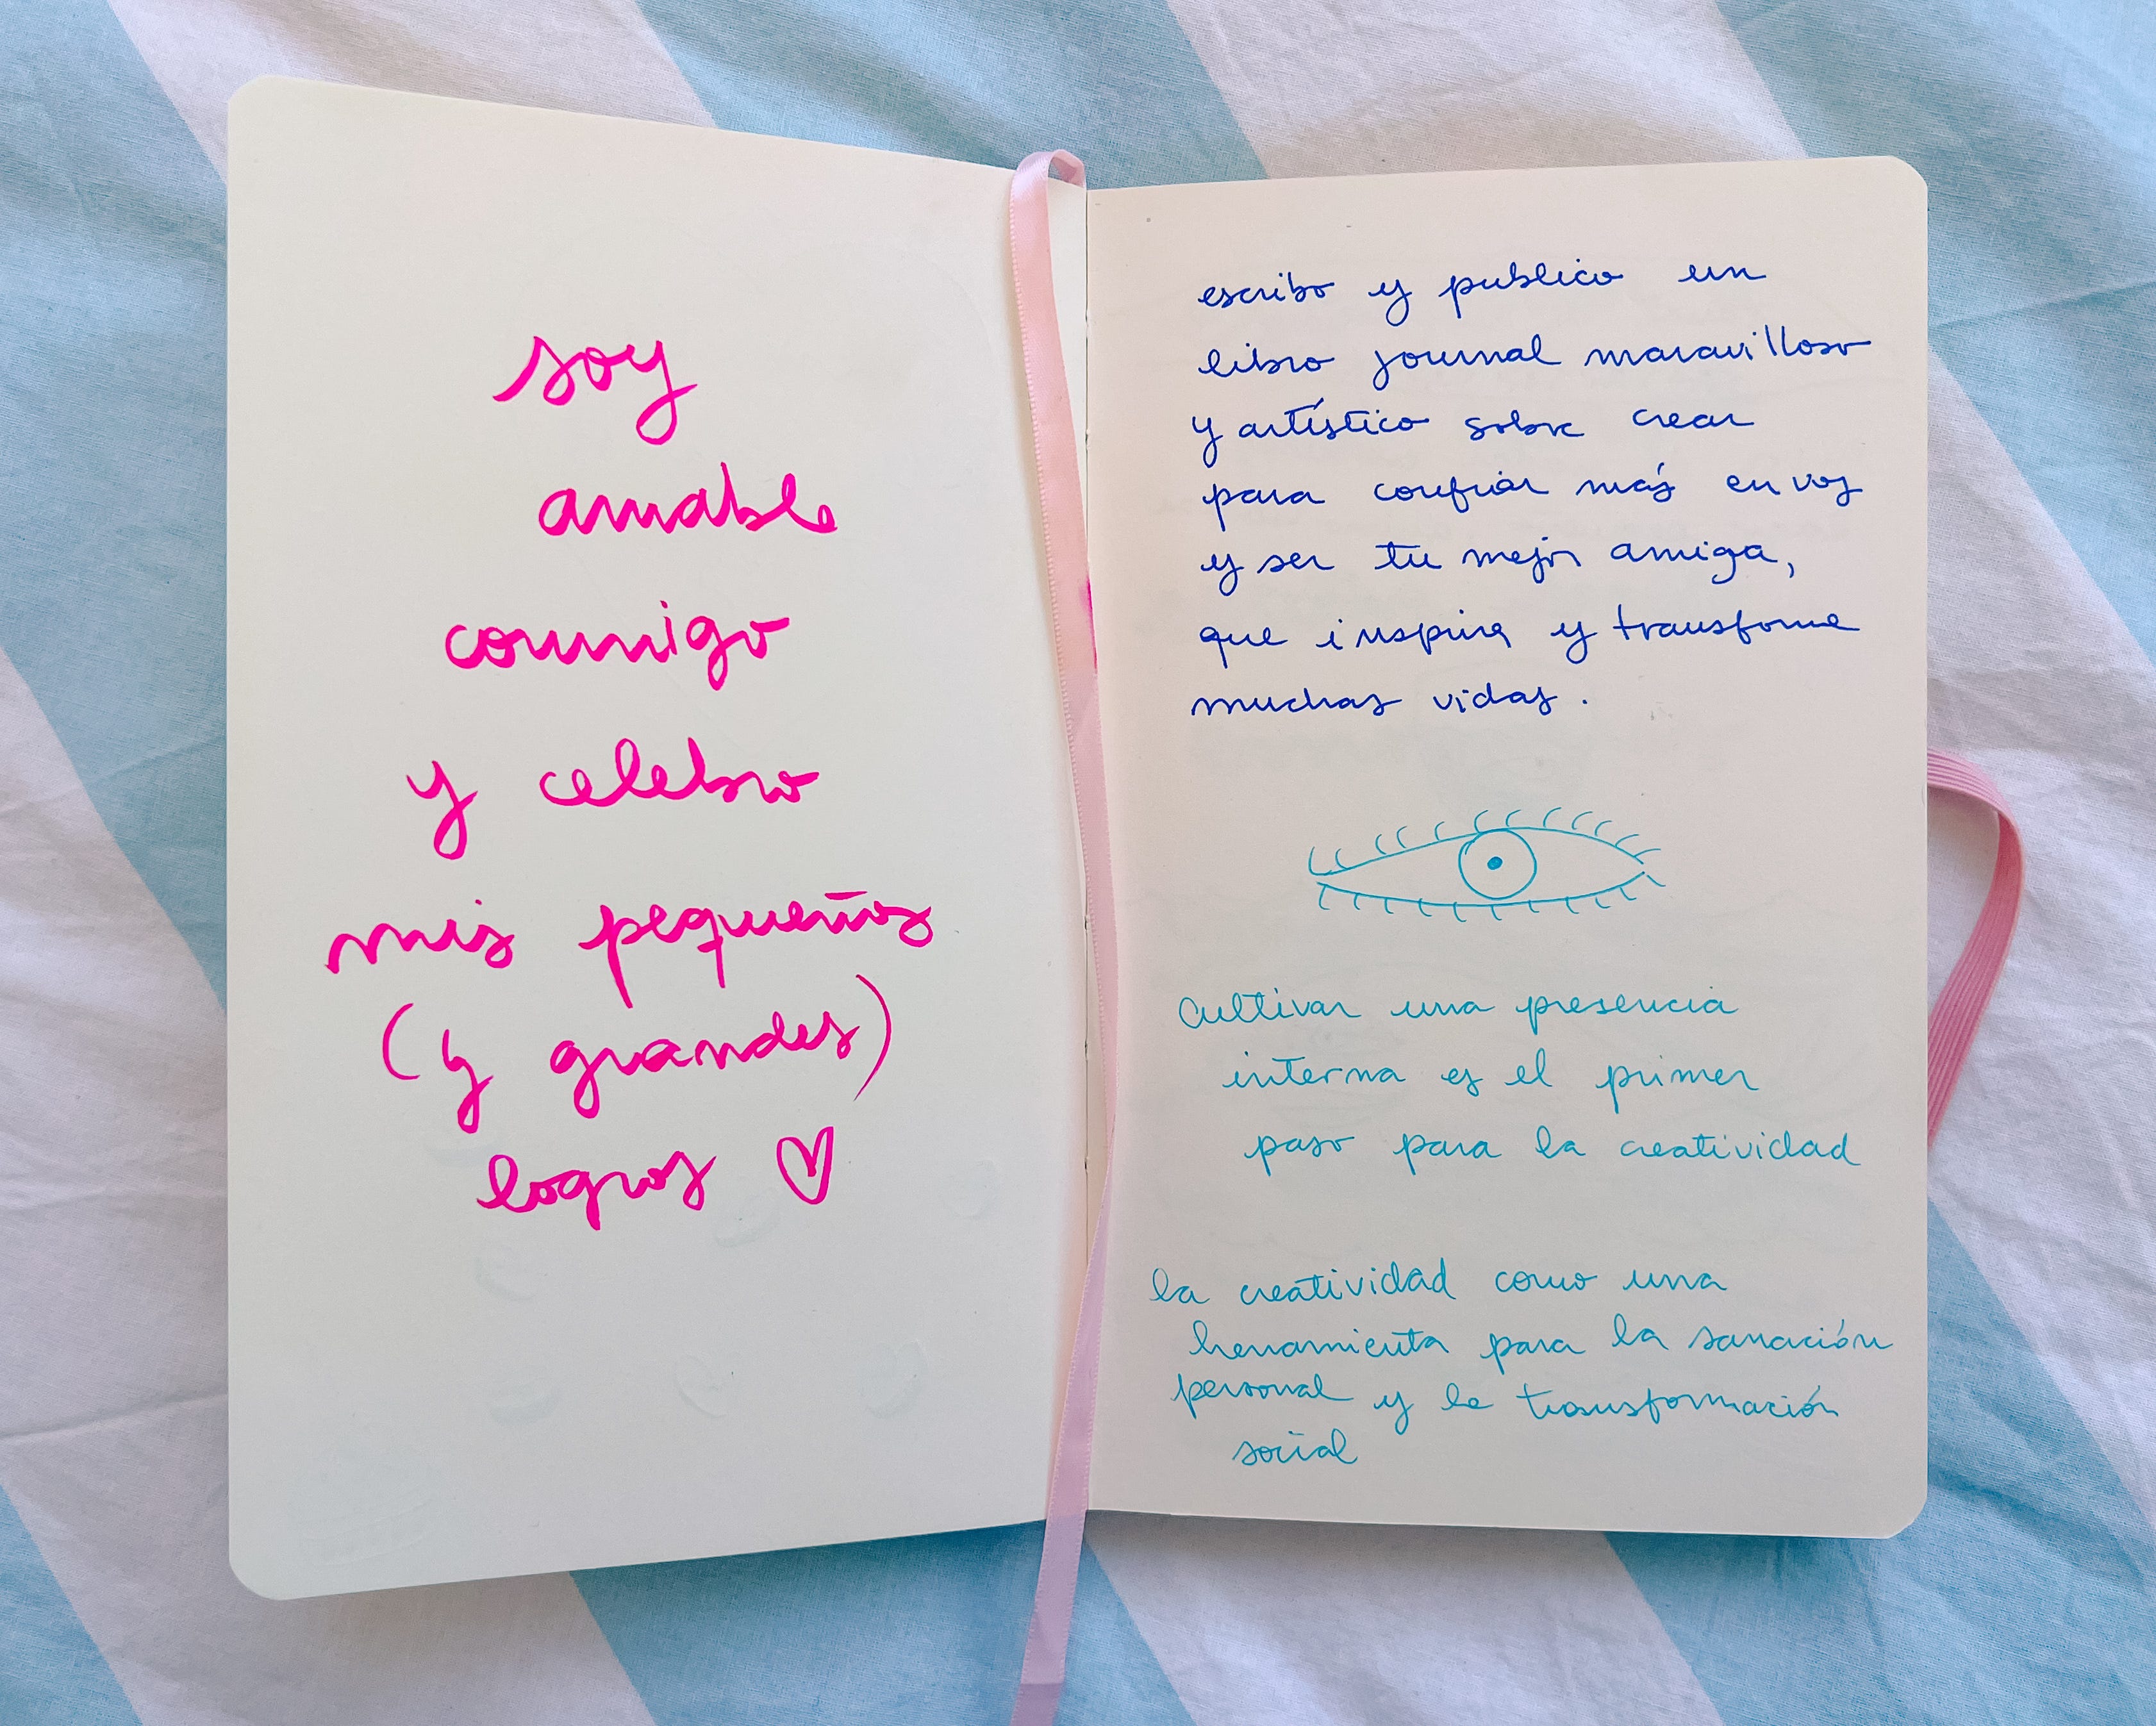 soy
amable
conmigo
y celebro
mis pequeños
(y grandes)
logros
escribo y publico un
libro journal maravilloso
y artístico sobre crear
para confiar más en vos
y ser tu mejor amiga,
que inspira y transforme
muchas vidas.
Cultivar una presencia
interna es el primer
paso para la creatividad
la creatividad como una
herramienta para la sanación
personal y la transformación
social